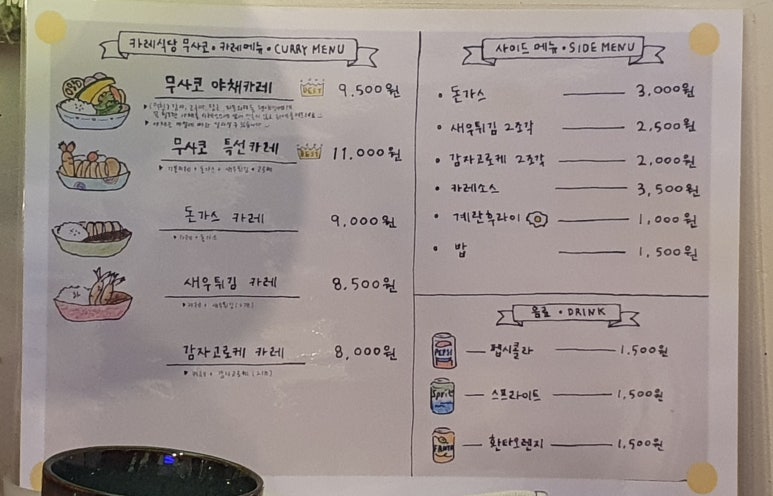 카레식당 무사코 • 카레메뉴 • CURRY MENU
무사코 야채카레 BEST 9,500원
무사코 특선카레 BEST 11,000원
돈가스 카레 9,000원
▶ 카레 + 돈가스
새우튀김 카레 8,500원
감자고로케 카레 8,000원
사이드 메뉴 • SIDE MENU
• 돈가스 3,000원
• 새우튀김 2조각 2,500원
• 감자고로케 2조각 2,000원
• 카레소스 3,500원
• 계란후라이 1,000원
• 밥 1,500원
음료 • DRINK
PEPSI 펩시콜라 1,500원
Sprit 스프라이트 1,500원
FANTA 환타오렌지 1,500원